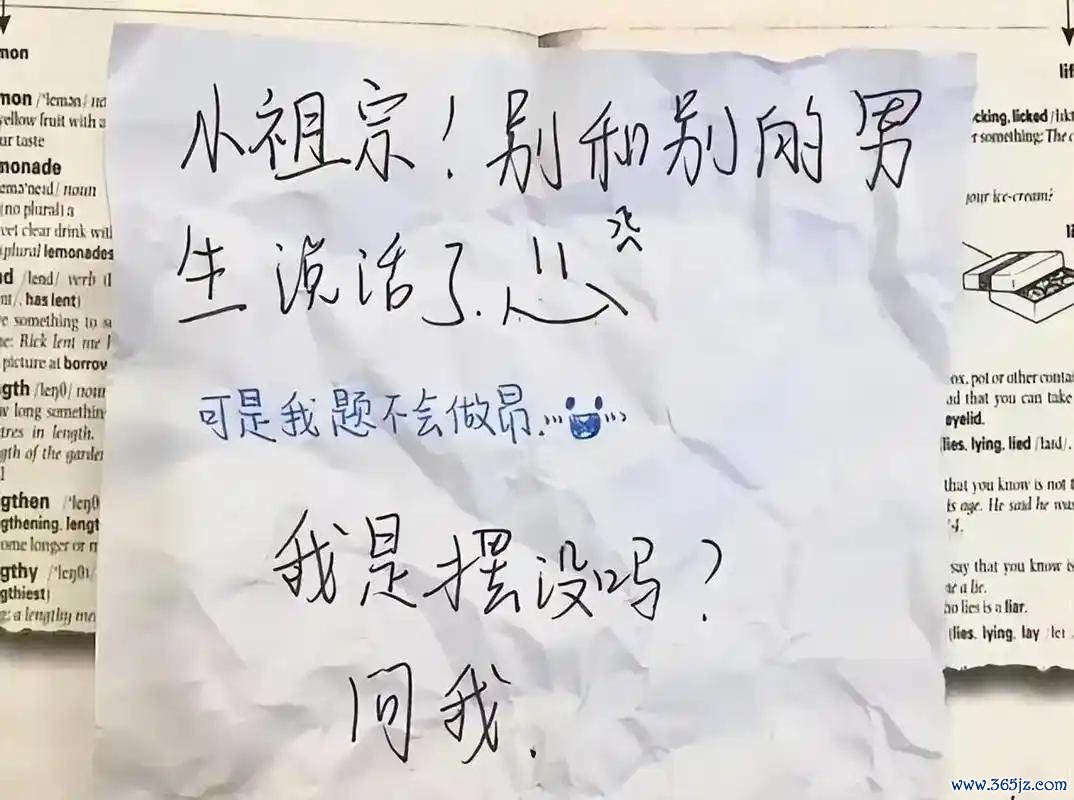 mon
mon /'lemən/
yellow fruit with a
ur taste
monade
emə'neɪd/ noun
(no plural) a
clear drink
plural lemonades
/lend/ verb
has lent)
something to
Rick lent me
picture at borrow
gth /leŋθ/ noun
w long somethin
tres in length.
gth of the garden
gthen /'leŋθ
gthening, lengt
ome longer or
gthy /'leŋθɪ/
gthiest)
a lengthy
小祖宗！别和别的男
生说话了.
可是我题不会做昂...
我是摆设吗？
问我.
lif
cking, licked /lɪkt
r something: The
your ice-cream?
ox, pot or other contai
ad that you can take
eyelid.
lies, lying, lied /laɪd/.
that you know is not
is age. He said he was
4.
say that you know is
e a lie.
ho lies is a liar.
(lies, lying, lay /leɪ
www.365jz.com